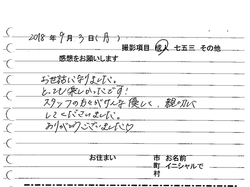 2018年9月3日(月)
撮影項目 成人 七五三 その他
感想をお願いします
お世話になりました。
とっても楽しかったです!
スタッフの方々がみんな優しく、親切に
してくださいました。
ありがとうございました♡
お住まい 市 お名前
町 イニシャルで
村